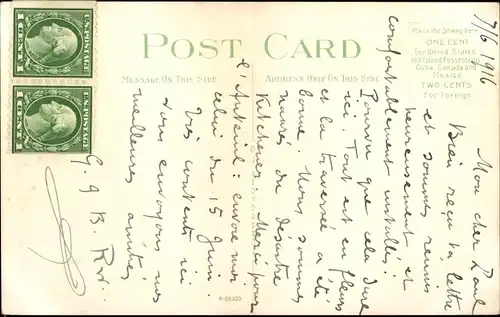 POST CARD
MESSAGE ON THIS SIDE
ADDRESS ONLY ON THIS SIDE
Place the Stamp here
ONE CENT
for United States
and Island Possessions
Cuba, Canada and
Mexico
TWO CENTS
for Foreign
U.S. POSTAGE
1 CENT 1
U.S. POSTAGE
1 CENT 1
9/6 1916
Mon cher Paul
Bien reçu ta lettre
et sommes ravis
heureusement et
confortablement installés!
Pourvu que cela dure
ici. Tout est en fleurs
et la traversée a été
bonne. Nous sommes
navrés du désastre
Kitchener. Merci pour
l'Auteuil: envoie moi
celui du 15 Juin.
Très content ici
vous envoyons nos
meilleures amitiés
G. & B.